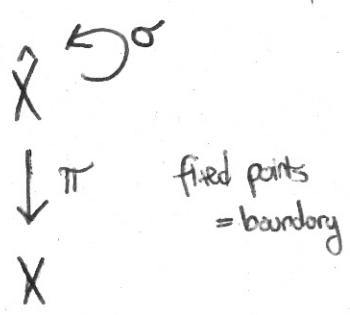 X̂ σ
π
fixed points
= boundary
X